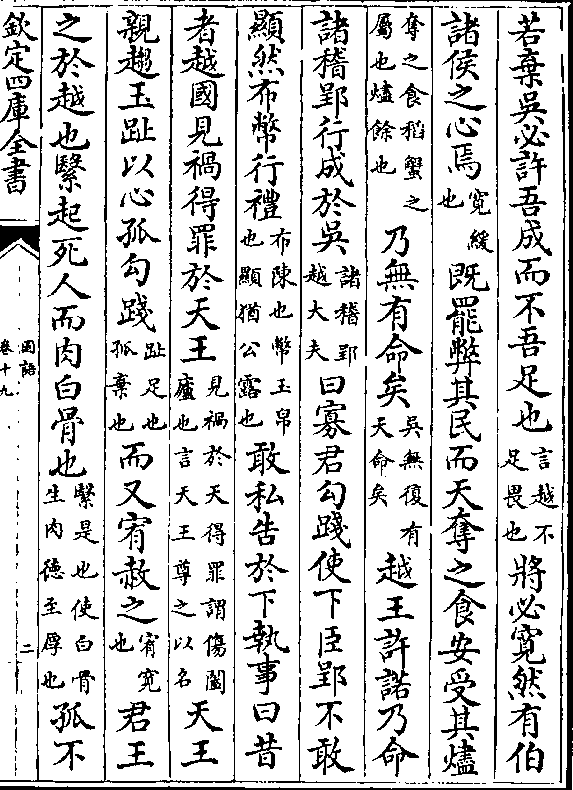 若棄吳必許吾成而不吾足也言越不足畏也將必寛然有伯
諸侯之心焉寛緩也既罷弊其民而天奪之食安受其燼
奪之食稻蟹之屬也燼餘也乃無有命矣吳無復有天命矣越王許諾乃命
諸稽郢行成於吳諸稽郢越大夫曰寡君勾踐使下臣郢不敢
顯然布幣行禮布陳也幣玉帛也顯猶公露也敢私告於下執事曰昔
者越國見禍得罪於天王見禍於天得罪謂傷闔廬也言天王尊之以名天王
親趨玉趾以心孤勾踐趾足也孤棄也而又宥赦之宥寛也君王
之於越也繄起死人而肉白骨也繄是也使白骨生肉德至厚也孤不
欽定四庫全書
國語
卷十九
二